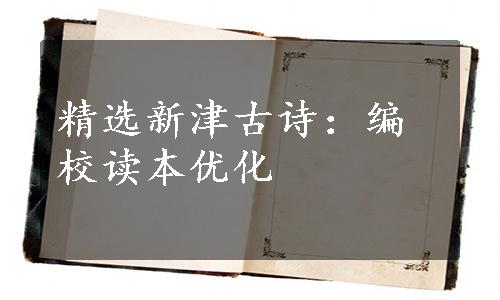 精选新津古诗：编
校读本优化